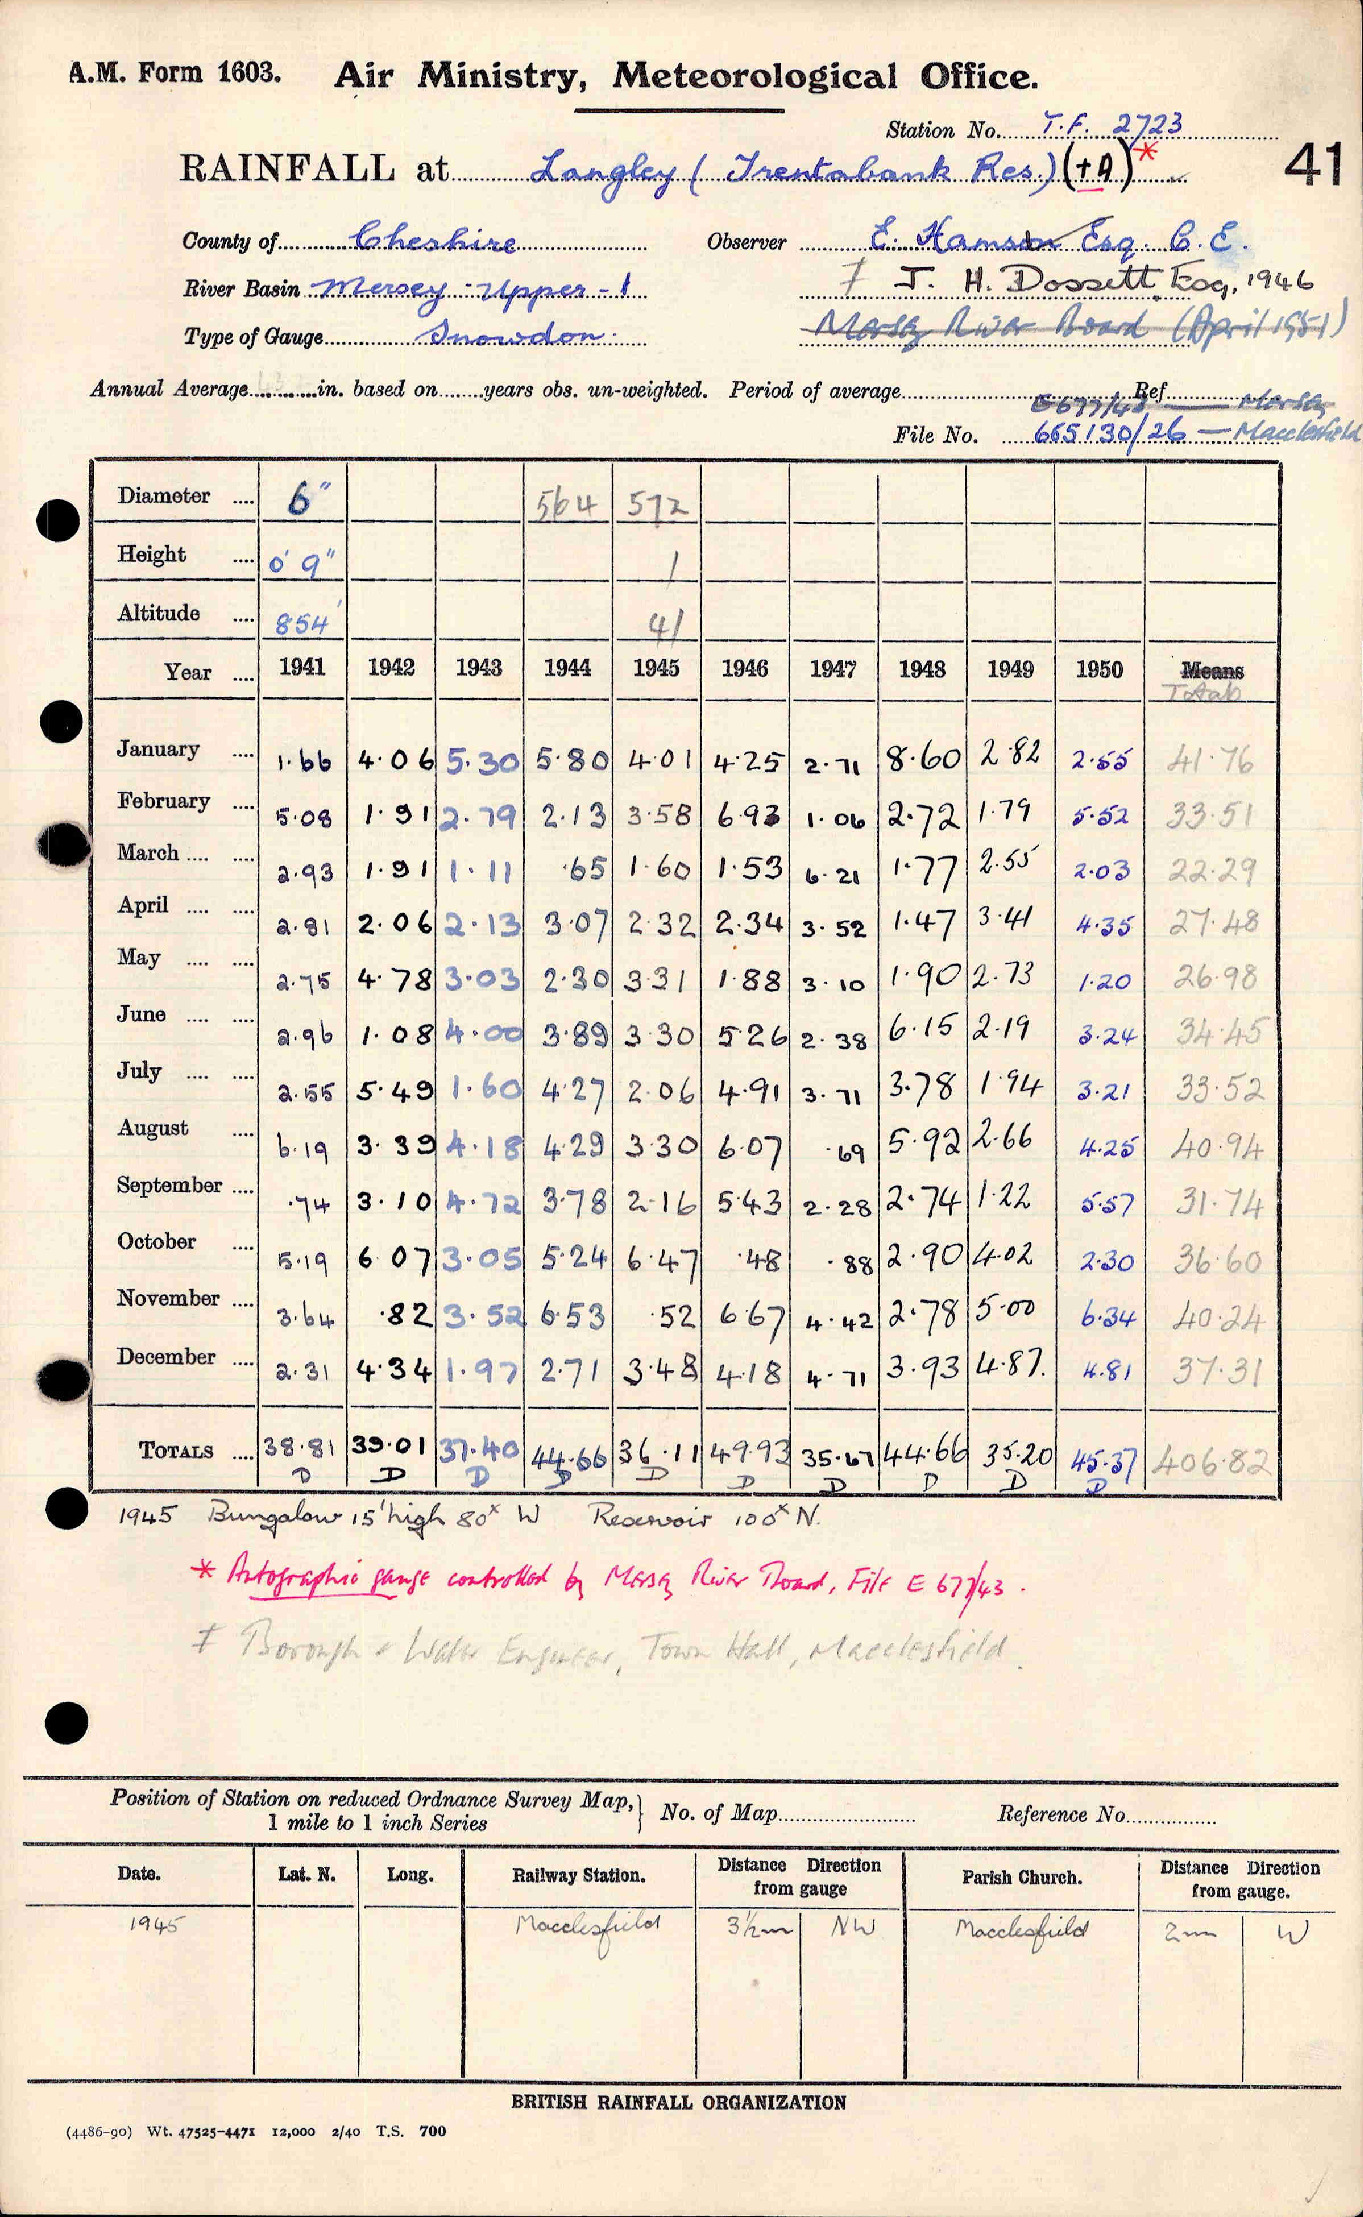 A.M. Form 1603. Air Ministry, Meteorological Office.
Station No. T.F. 2723
RAINFALL at Langley (Trentabank Res.) (+A)* 41
County of Cheshire Observer E. Hamson Esq. C.E.
River Basin Mersey - Upper - 1 ‡ J. H. Dossett Esq, 1946
Type of Gauge Snowdon. Mersey River Board (April 1951)
Annual Average in. based on years obs. un-weighted. Period of average Ref.
E677/43 — Mersey
File No. 665130/26 — Macclesfield
Diameter 6" 564 572
Height 0' 9" 1
Altitude 854' 41
Year 1941 1942 1943 1944 1945 1946 1947 1948 1949 1950 Means
Totals
January 1.66 4.06 5.30 5.80 4.01 4.25 2.71 8.60 2.82 2.55 41.76
February 5.08 1.91 2.79 2.13 3.58 6.93 1.06 2.72 1.79 5.52 33.51
March 2.93 1.91 1.11 .65 1.60 1.53 6.21 1.77 2.55 2.03 22.29
April 2.81 2.06 2.13 3.07 2.32 2.34 3.52 1.47 3.41 4.35 27.48
May 2.75 4.78 3.03 2.30 3.31 1.88 3.10 1.90 2.73 1.20 26.98
June 2.96 1.08 4.00 3.89 3.30 5.26 2.38 6.15 2.19 3.24 34.45
July 2.55 5.49 1.60 4.27 2.06 4.91 3.71 3.78 1.94 3.21 33.52
August 6.19 3.39 4.18 4.29 3.30 6.07 .69 5.92 2.66 4.25 40.94
September .74 3.10 4.72 3.78 2.16 5.43 2.28 2.74 1.22 5.57 31.74
October 5.19 6.07 3.05 5.24 6.47 .48 .88 2.90 4.02 2.30 36.60
November 3.64 .82 3.52 6.53 .52 6.67 4.42 2.78 5.00 6.34 40.24
December 2.31 4.34 1.97 2.71 3.48 4.18 4.71 3.93 4.87. 4.81 37.31
TOTALS 38.81 39.01 37.40 44.66 36.11 49.93 35.67 44.66 35.20 45.37 406.82
D D D D D D D D D D
1945 Bungalow 15' high 80x W Reservoir 100x N.
* Autographic gauge controlled by Mersey River Board, File E 677/43.
‡ Borough & Water Engineer, Town Hall, Macclesfield.
Position of Station on reduced Ordnance Survey Map, } No. of Map Reference No.
1 mile to 1 inch Series
Date. Lat. N. Long. Railway Station. Distance Direction from gauge Parish Church. Distance Direction from gauge.
1945 Macclesfield 3½m NW Macclesfield 2m W
BRITISH RAINFALL ORGANIZATION
(4486-90) Wt. 47525-4471 12,000 2/40 T.S. 700